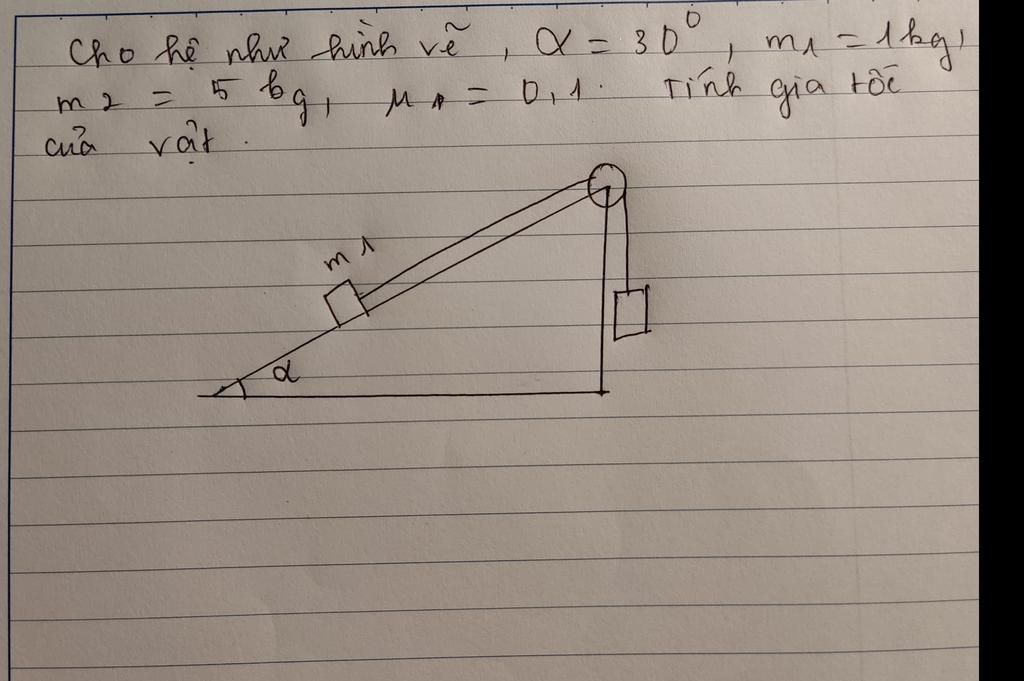 Cho hệ như hình vẽ, α = 30⁰, m1 = 1kg,
m2 = 5 kg, μ1 = 0,1. Tính gia tốc
của vật.
m1
α